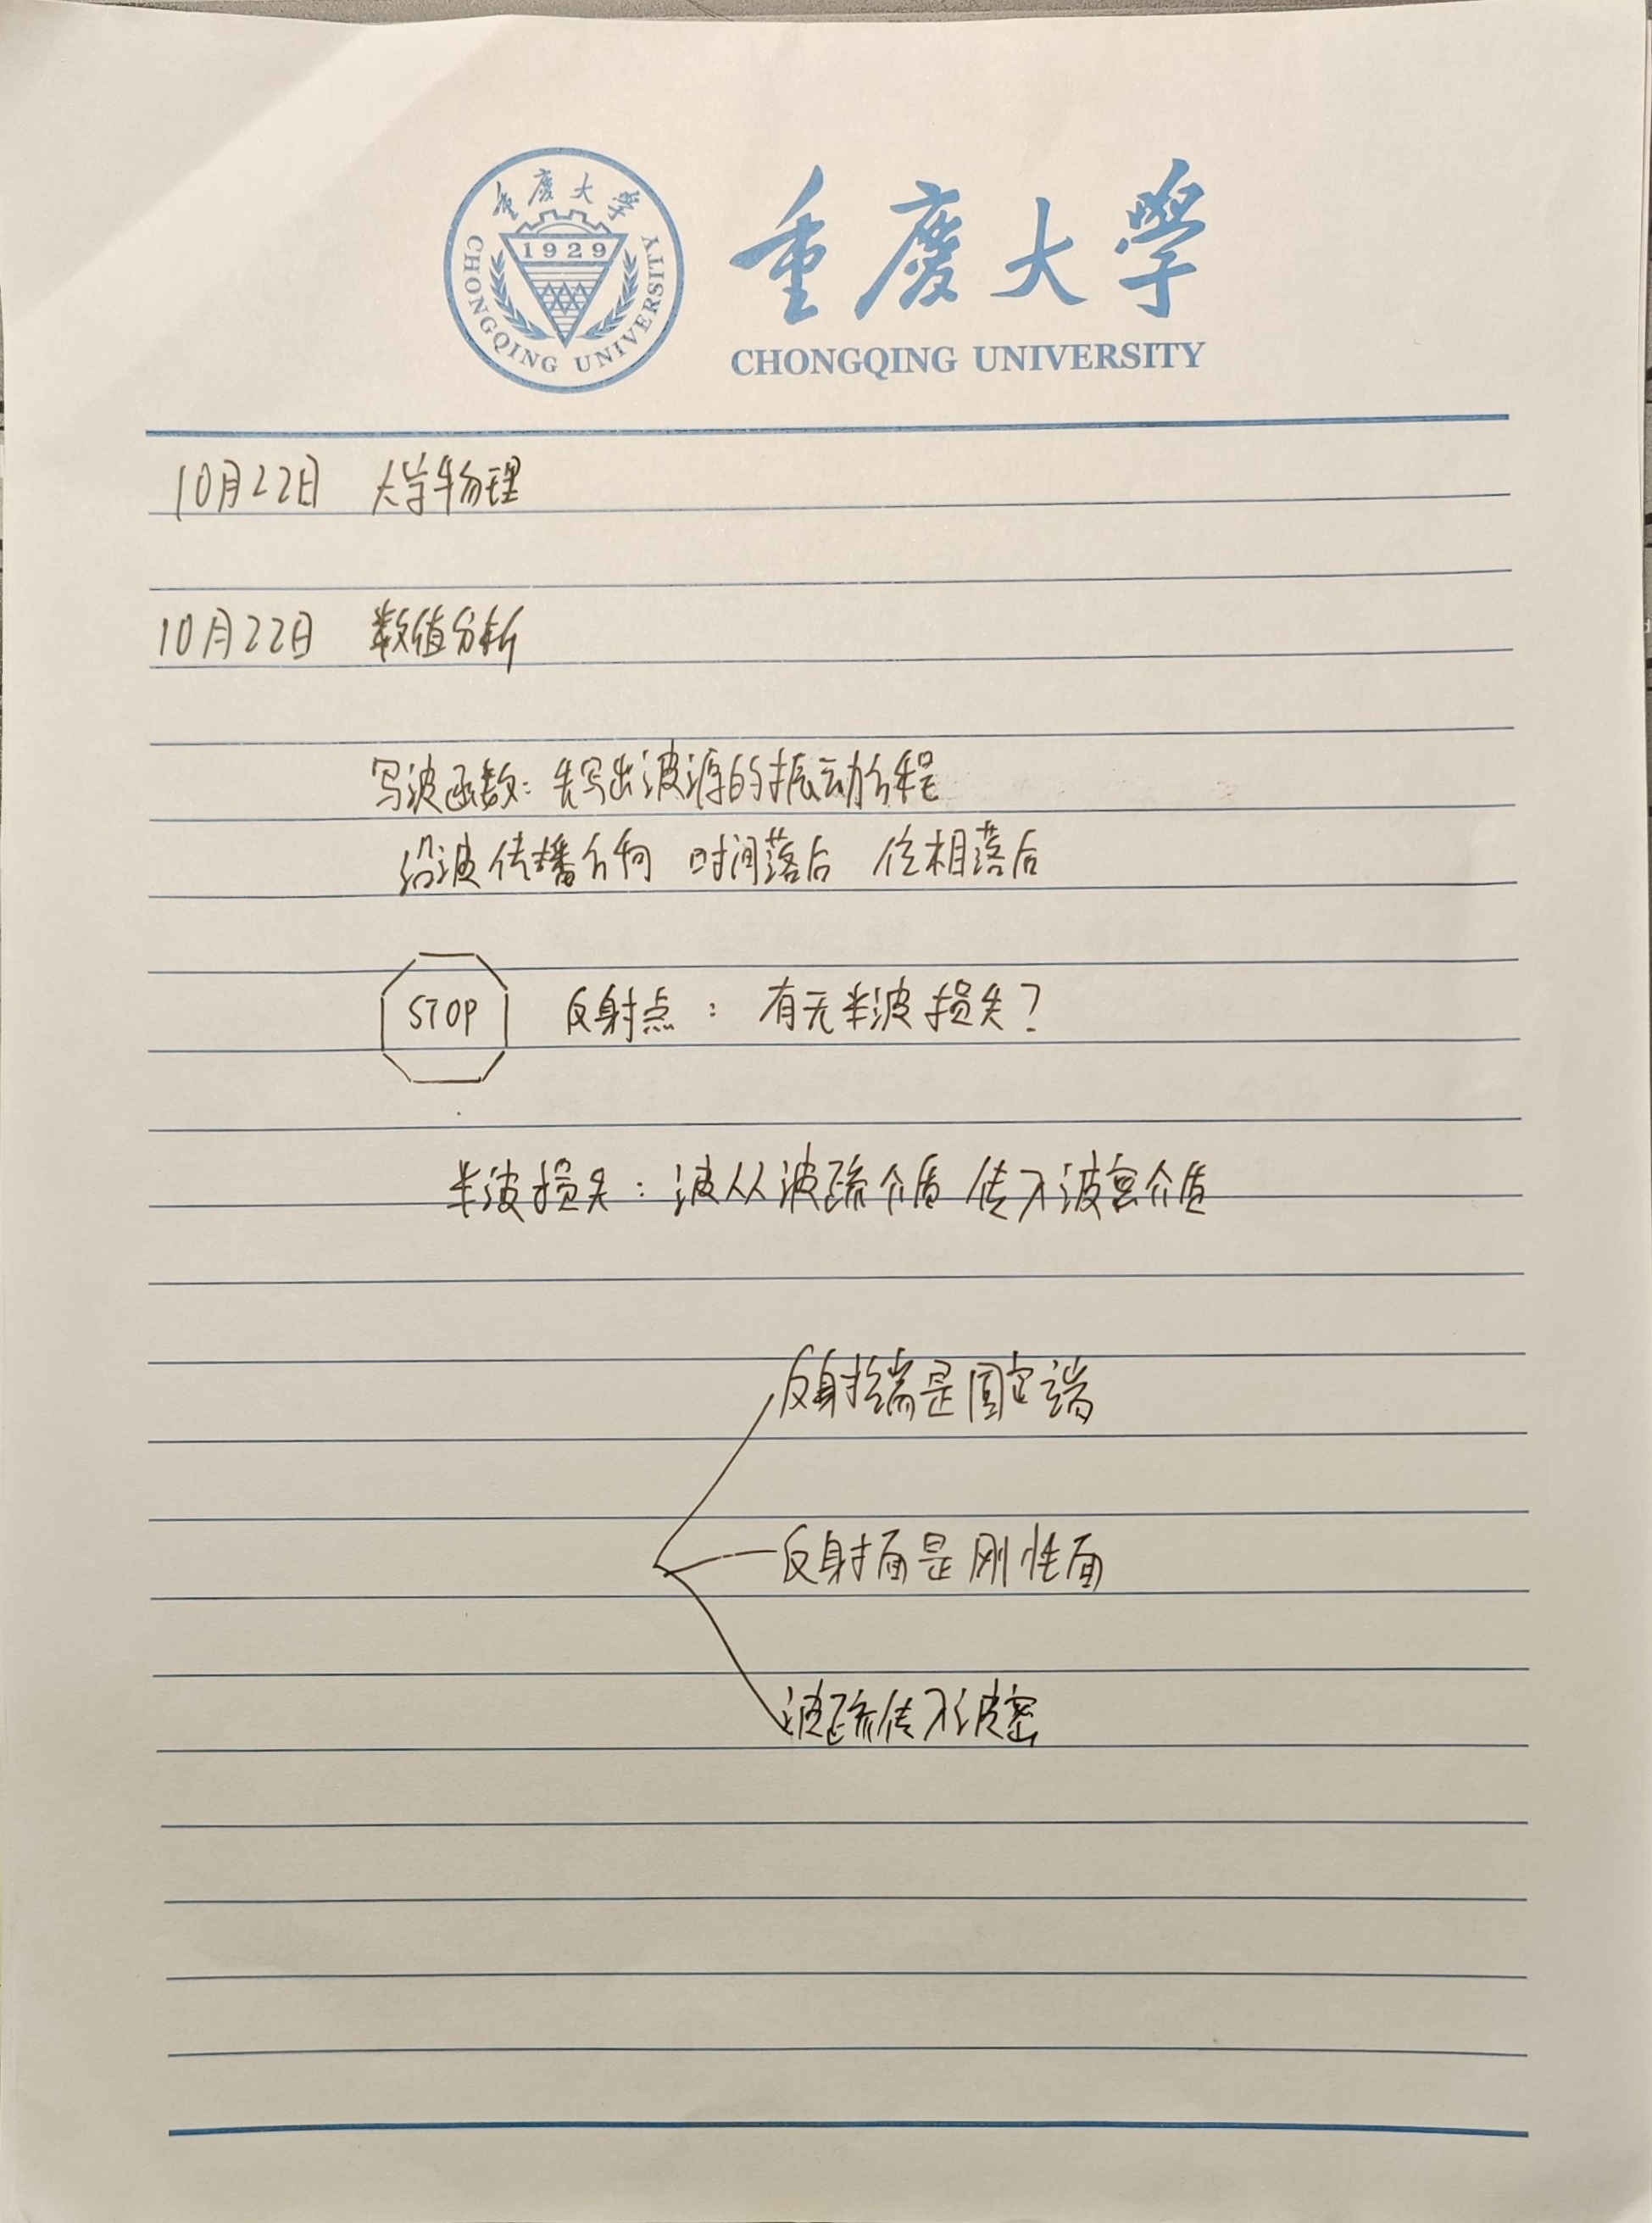 重慶大学
1929
CHONGQING UNIVERSITY
重慶大學
CHONGQING UNIVERSITY
10月22日 大学物理
10月22日 数值分析
写波函数：先写出波源的振动方程
沿波传播方向 时间落后 位相落后
STOP 反射点：有无半波损失？
半波损失：波从波疏介质 传入波密介质
反射端是固定端
反射面是刚性面
波疏传入波密